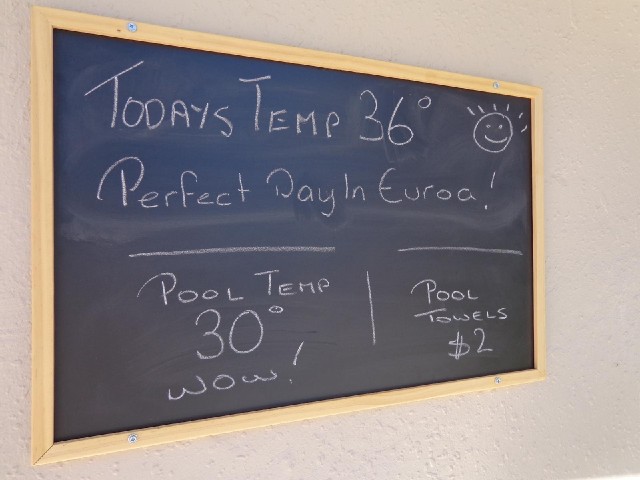 TODAYS TEMP 36°
Perfect Day In Euroa!
POOL TEMP
30°
WOW!
POOL
TOWELS
$2